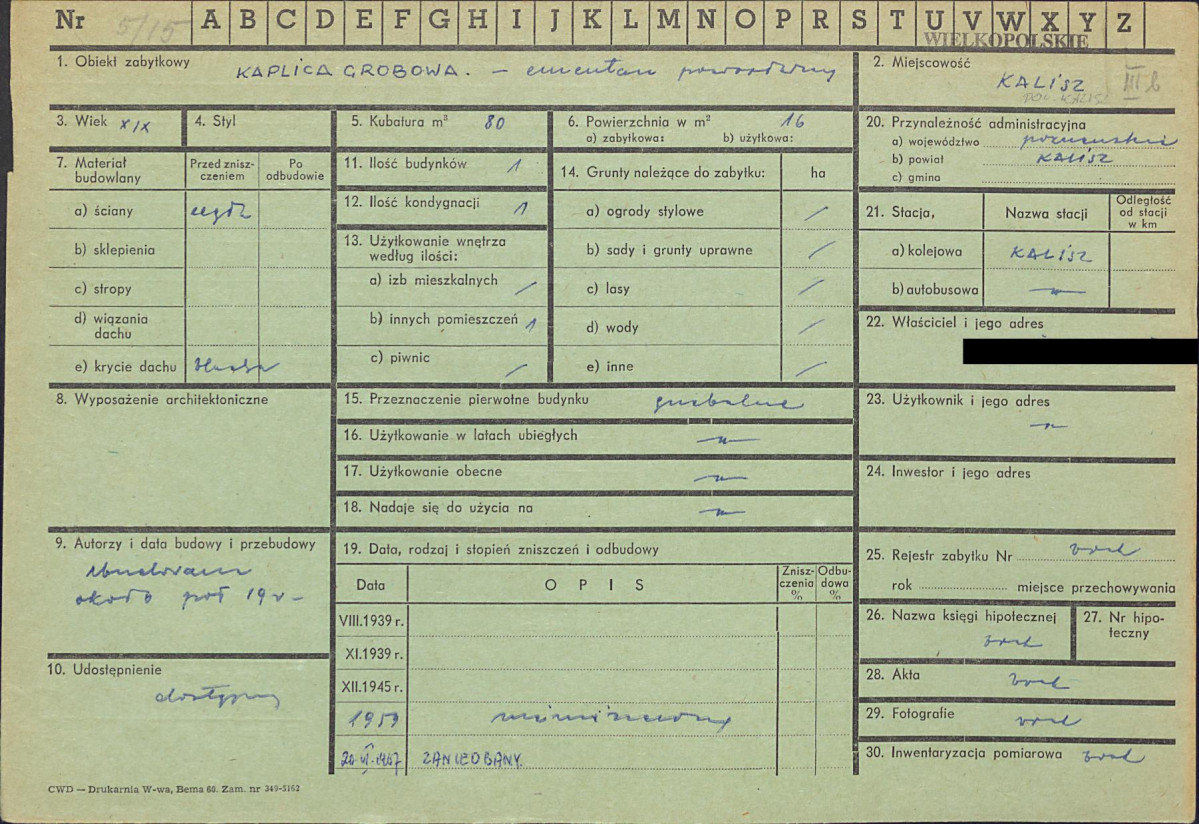 Nr 5/15 A B C D E F G H I J K L M N O P R S T U V W X Y Z
WIELKOPOLSKIE
1. Obiekt zabytkowy KAPLICA GROBOWA. – cmentarz
2. Miejscowość
KALISZ III b
POW. KALISZ
3. Wiek XIX
4. Styl
5. Kubatura m³ 80
6. Powierzchnia w m² 16
a) zabytkowa: b) użytkowa:
7. Materiał budowlany
Przed zniszczeniem
Po odbudowie
a) ściany cegła
b) sklepienia
c) stropy
d) wiązania dachu
e) krycie dachu blacha
8. Wyposażenie architektoniczne
9. Autorzy i data budowy i przebudowy
zbudowana
około poł 19 w –
10. Udostępnienie
dostępny
11. Ilość budynków 1
12. Ilość kondygnacji 1
13. Użytkowanie wnętrza
według ilości:
a) izb mieszkalnych /
b) innych pomieszczeń 1
c) piwnic /
14. Grunty należące do zabytku: ha
a) ogrody stylowe /
b) sady i grunty uprawne /
c) lasy /
d) wody /
e) inne /
15. Przeznaczenie pierwotne budynku grzebalne
16. Użytkowanie w latach ubiegłych –"–
17. Użytkowanie obecne –"–
18. Nadaje się do użycia na –"–
19. Data, rodzaj i stopień zniszczeń i odbudowy
Data OPIS Zniszczenia % Odbudowa %
VIII.1939 r.
XI.1939 r.
XII.1945 r.
1959
20.VI.1967 ZANIEDBANY.
20. Przynależność administracyjna
a) województwo poznańskie
b) powiat KALISZ
c) gmina
21. Stacja, Nazwa stacji Odległość od stacji w km
a) kolejowa KALISZ
b) autobusowa –"–
22. Właściciel i jego adres
23. Użytkownik i jego adres
–"–
24. Inwestor i jego adres
25. Rejestr zabytku Nr brak
rok miejsce przechowywania
26. Nazwa księgi hipotecznej
brak
27. Nr hipoteczny
28. Akta brak
29. Fotografie brak
30. Inwentaryzacja pomiarowa brak
CWD — Drukarnia W-wa, Bema 60. Zam. nr 349-5162